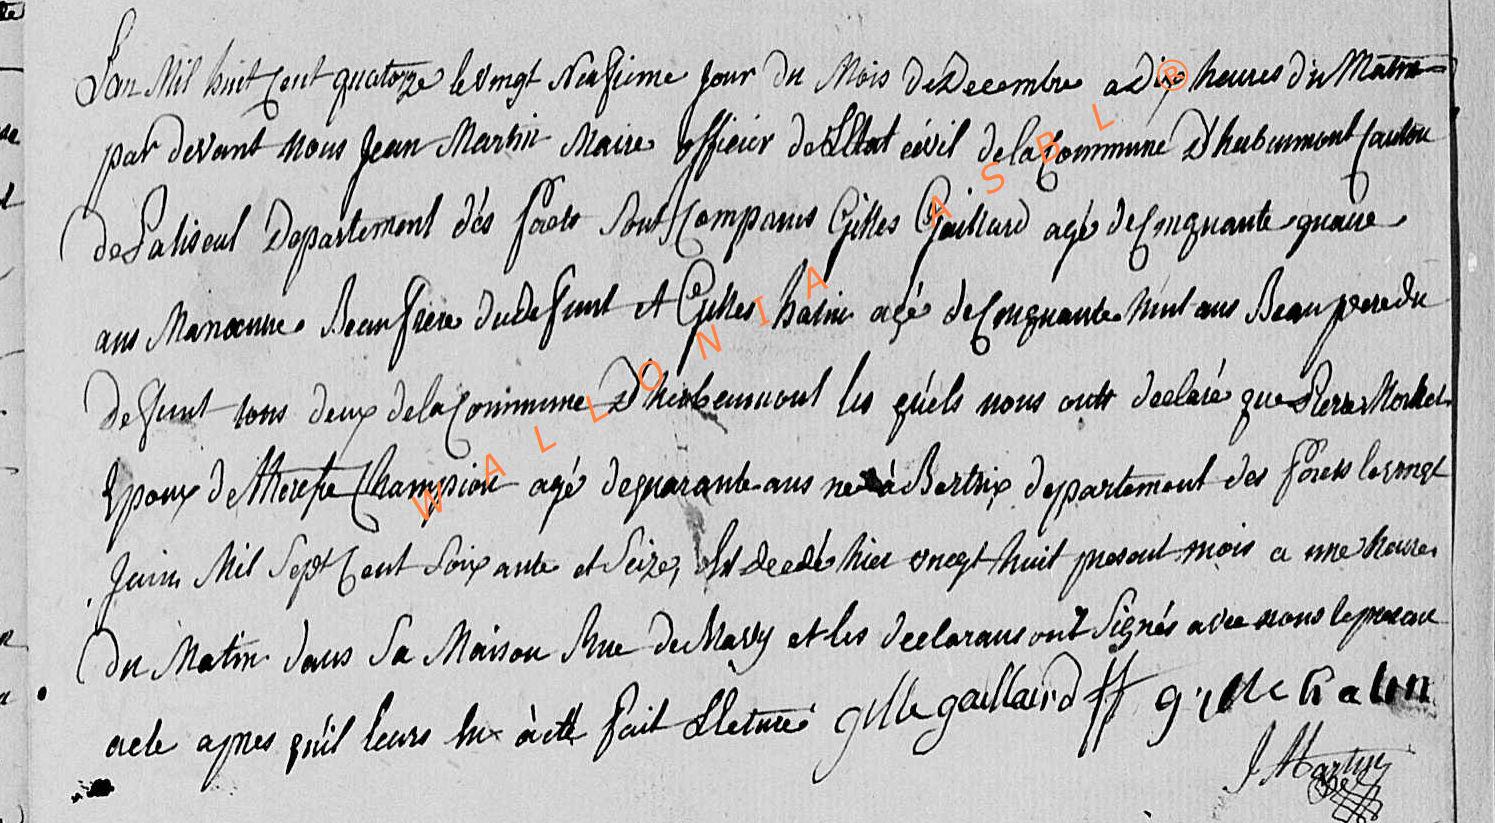 L'an Mil huit Cent quatorze le vingt Neufieme jour du Mois de Decembre a Dix heures du Matin
par devant nous Jean Martin Maire officier de L'Etat civil de la Commune D'herbeumont Canton
de Paliseul Departement dés forets sont Comparus Gilles Gaillard agé de Cinquante quatre
ans Manœuvre Beau frere du defunt et Gilles halin agé de Cinquante huit ans Beau pere du
defunt tous deux de la Commune D'herbeumont les quéls nous ont declaré que Pierre
Epoux de Therese Champion agé de quarante ans né à Bertrix departement des forets le vingt
Juin Mil Sept Cent Soixante et Seize, Est decedé hier vingt huit present mois a une heure
du Matin dans Sa Maison Rue de et les declarans ont Signés avec nous le present
acte apres qu'il leurs lu à été fait Lleture gille gaillaird ff gille halin
J Martin
WALLONIA ASBL ®